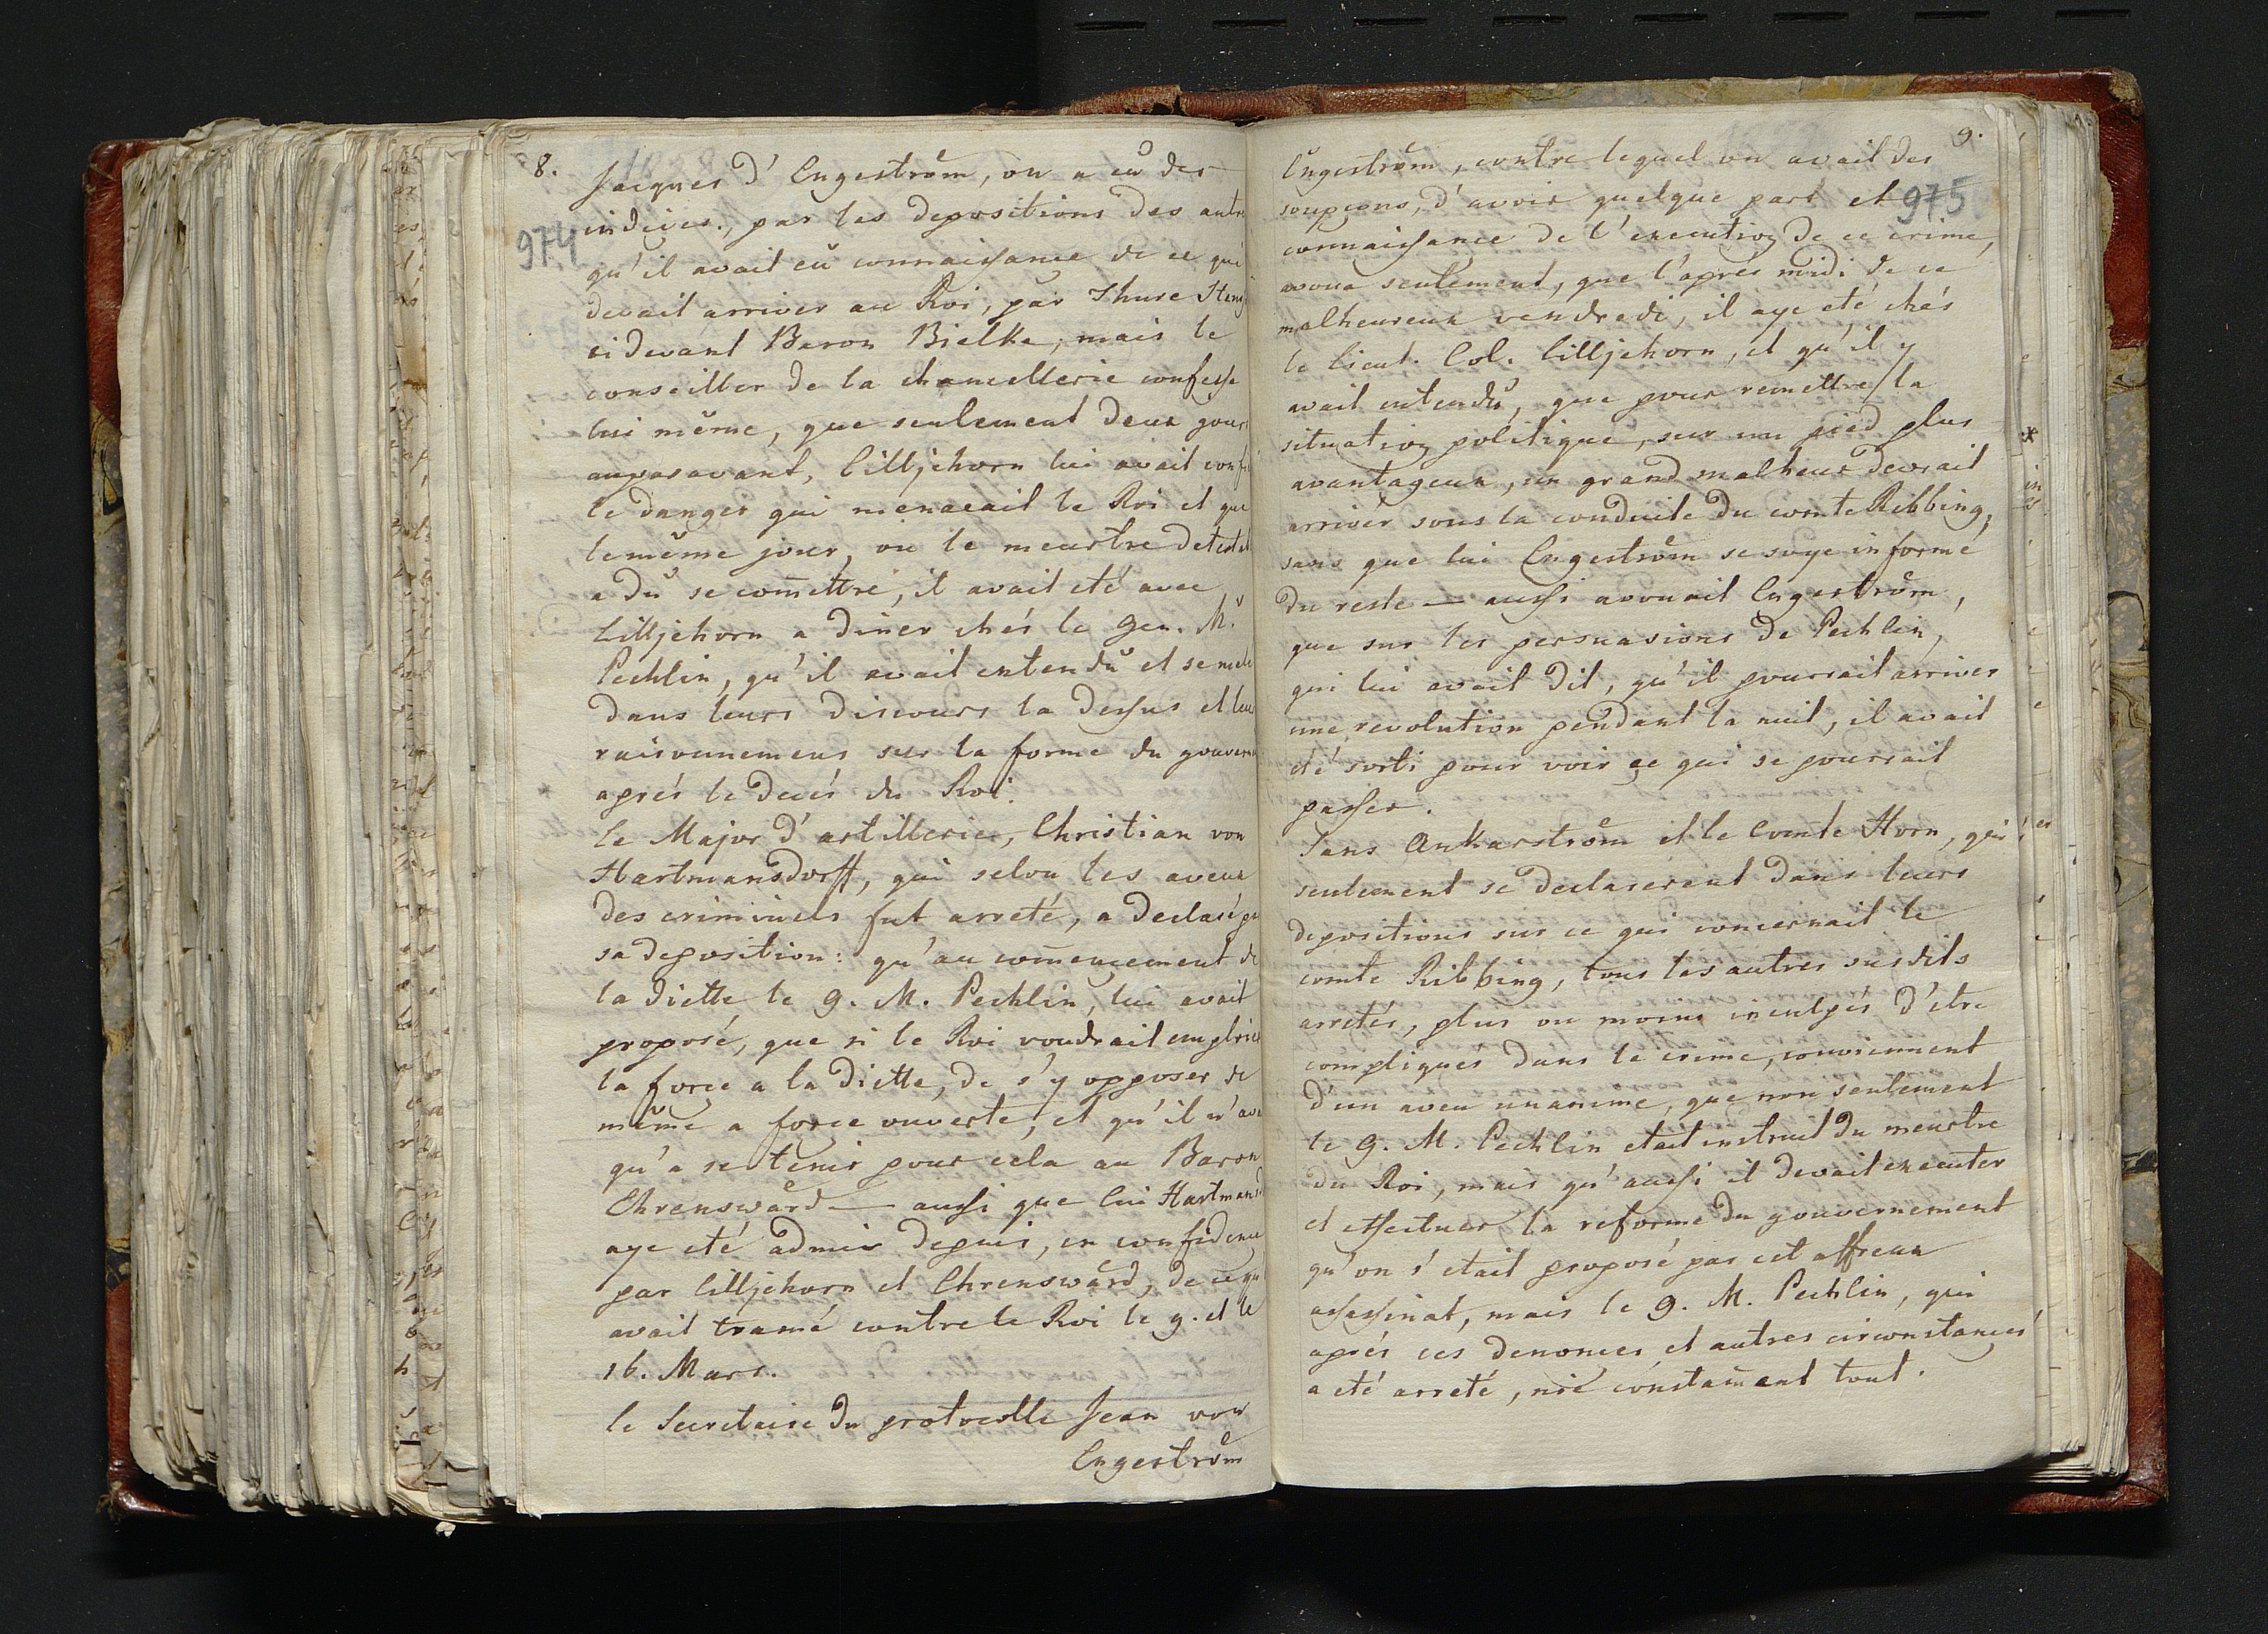 8.
974
Jacques d'Engeström, on a eu des
indices, par les depositions des autre
qu'il avait eû connaissance de ce qui
devait arriver au Roi, par Thure Sten
cidevant Baron Bielke, mais le
conseiller de la chancellerie confesse
lui même, que seulement deux jours
auparavant, Lilljehorn lui avait conf
le danger qui menacait le Roi et que
le même jour, ou le meurtre detest
a dû se com̄ettre, il avait eté avec
Lilljehorn a diner chés le Gen. M.
Pechlin, qu'il avait entendû et se mel
dans leurs discours la dessus et leu
raisonnemens sur la forme du gouvern
aprés le decés du Roi.
le Major d'artillerie, Christian von
Hartmansdorff, qui selon les aveux
des criminels fut arreté, a declaré pa
sa deposition: qu'au com̄encement de
la Diette le G. M. Pechlin, lui avait
proposé, que si le Roi voudrait emploier
la force a la diette, de s'y opposer de
même a force ouverte, et qu'il n'ave
qu'a se tenir pour cela au Baron
Ehrensward — aussi que lui Hartmansd
aye eté admis depuis, en confidence
par Lilljehorn et Ehrensward, de ce qu
avait tramé contre le Roi le 9. et le
16. Mars.
le Secretaire du protocolle Jean von
Engeström
9.
975
Engeström, contre lequel on avait des
soupçons, d'avoir quelque part et
connaissance de l'execution de ce crime,
avoua seulement, que l'aprés midi de ce
malheureux vendredi, il aye eté chés
le Lieut. Col. Lilljehorn, et qu'il y
avait entendû, que pour remettre la
situation politique, sur un pied plus
avantageux, un grand malheur devrait
arriver sous la conduite du comte Ribbing,
sans que lui Engeström se soye informé
du reste — aussi avouait Engeström,
que sur les persuasions de Pechlin,
qui lui avait dit, qu'il pourrait arriver
une revolution pendant la nuit, il avait
eté sorti pour voir ce qui se pourrait
passer.
Sans Ankarström et le Comte Horn, qui
seulement se declarerent dans leurs
depositions sur ce qui concernait le
comte Ribbing, tous les autres susdits
arretés, plus ou moins inculpés d'etre
compliqués dans le crime, conviennent
d'un aveu unanime, que non seulement
le G. M. Pechlin etait instruit du meurtre
du Roi, mais qu'aussi il devait executer
et effectuer la reforme du gouvernement
qu'on s'etait proposé par cet affreux
assassinat, mais le G. M. Pechlin, qui
aprés ces denonces et autres circonstances
a eté arreté, nie constam̄ent tout.